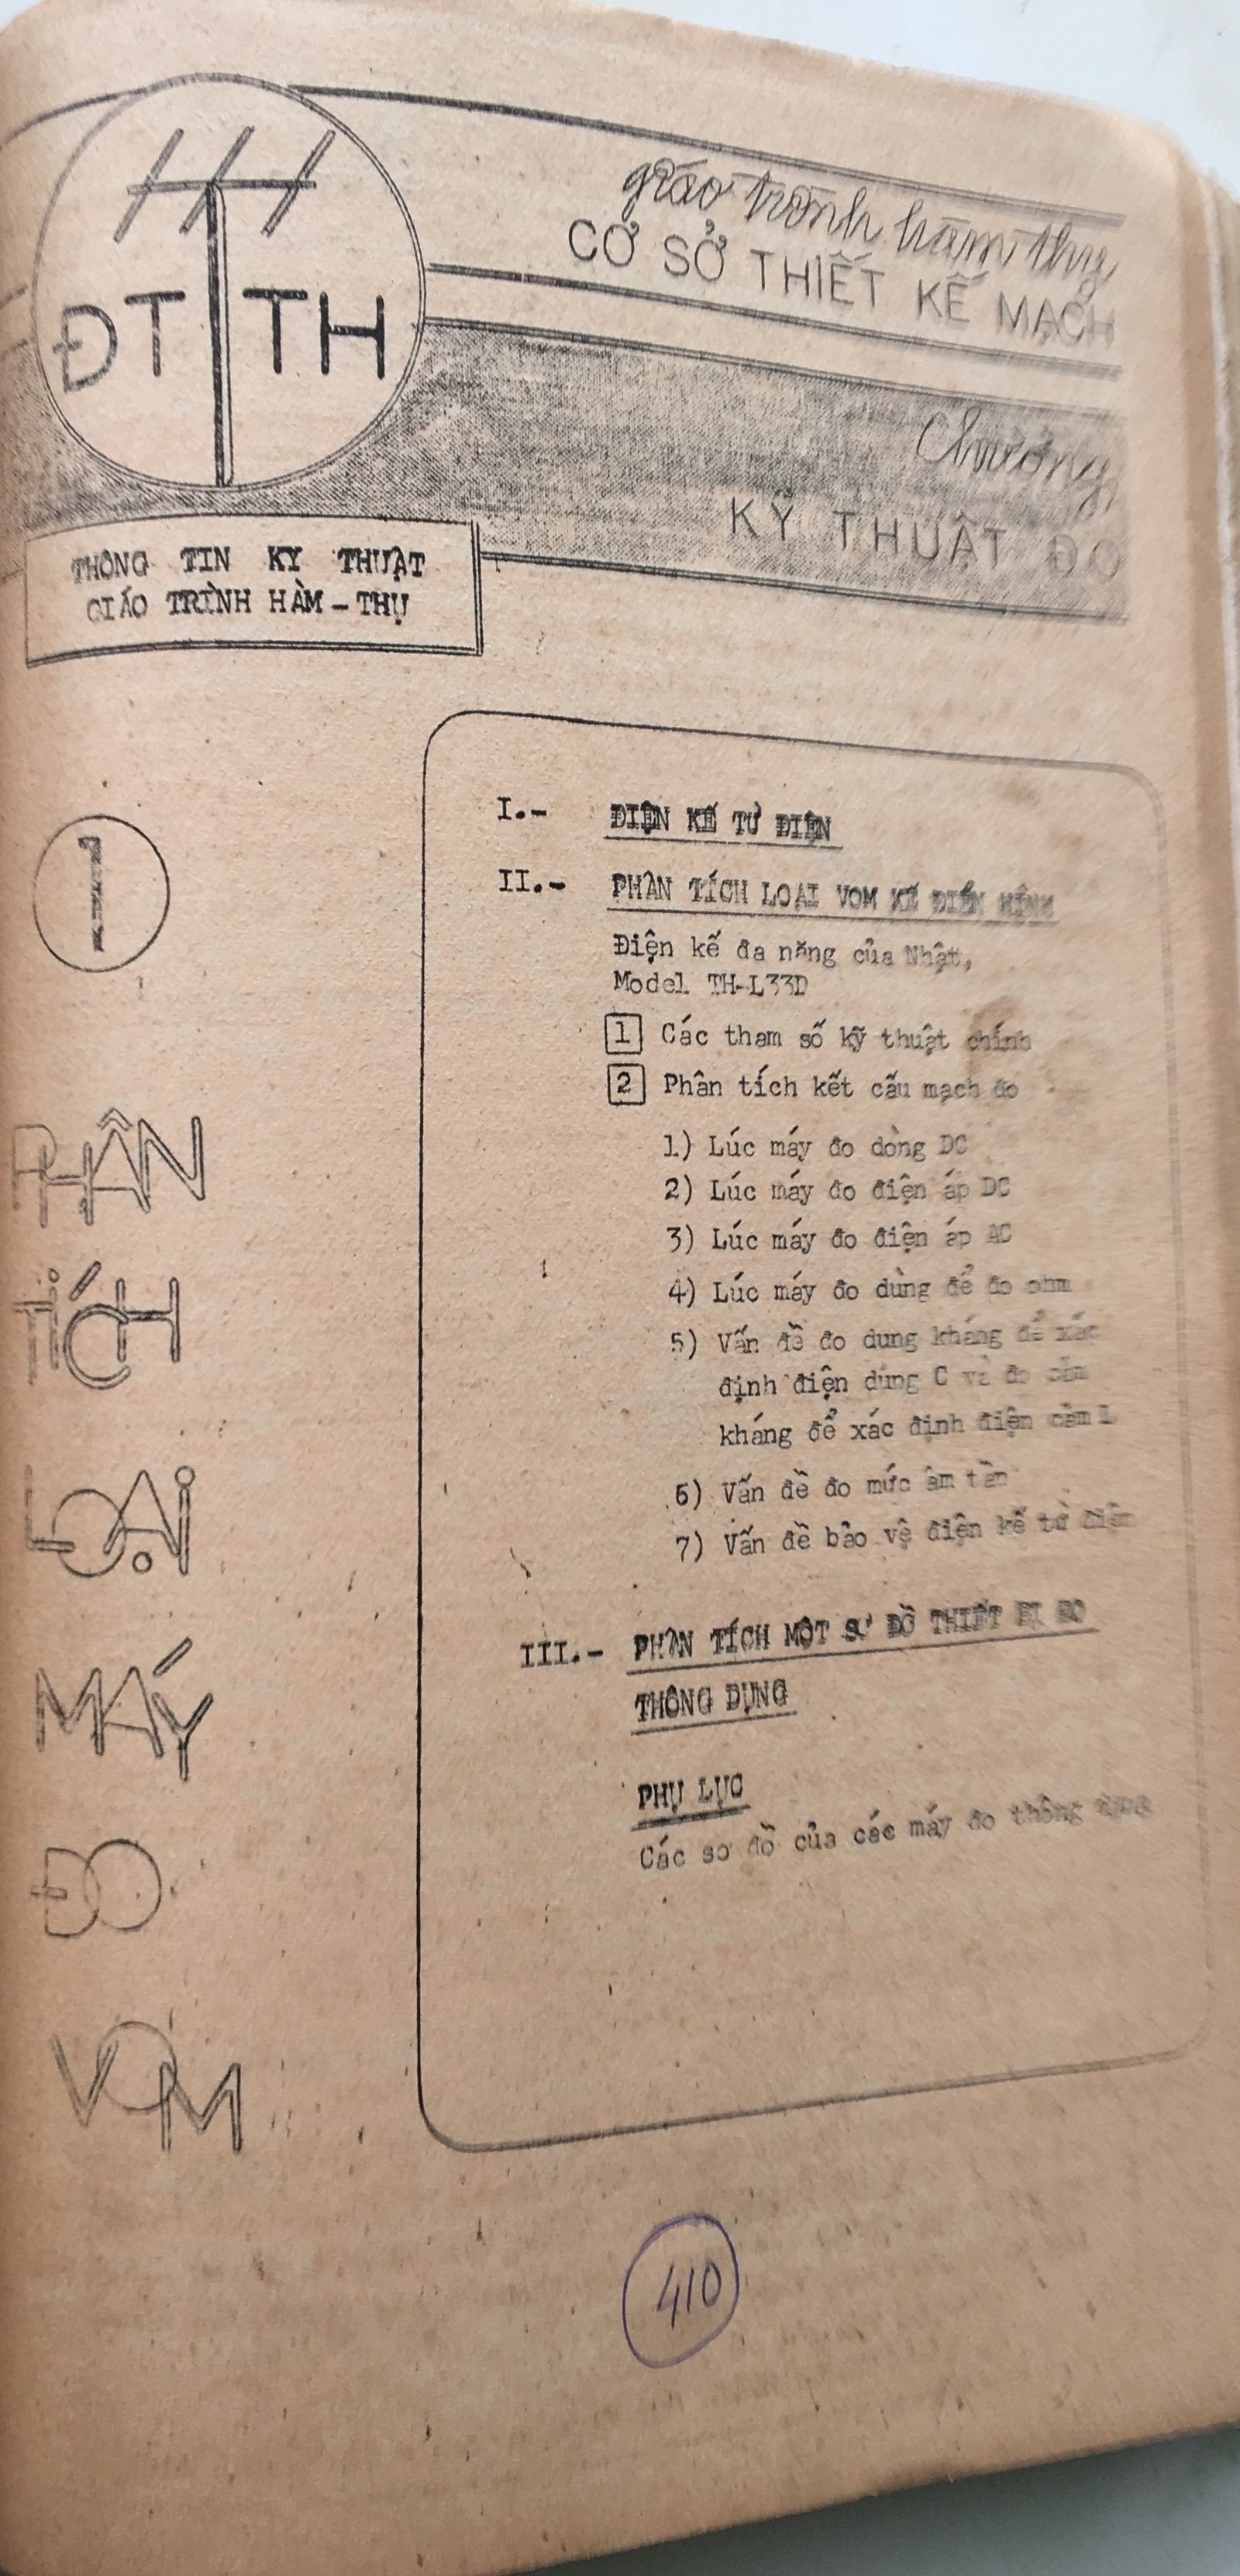 ĐT TH
giáo trình hàm thụ
CƠ SỞ THIẾT KẾ MẠCH
Chương
KỸ THUẬT ĐO
THÔNG TIN KY THUẬT
GIÁO TRÌNH HÀM - THỤ
1
PHÂN
TÍCH
LOẠI
MÁY
ĐO
VOM
I.- ĐIỆN KẾ TỪ ĐIỆN
II.- PHÂN TÍCH LOẠI VOM KẾ ĐIỂN HÌNH
Điện kế đa năng của Nhật,
Model TH-L33D
1 Các tham số kỹ thuật chính
2 Phân tích kết cấu mạch đo
1) Lúc máy đo dòng DC
2) Lúc máy đo điện áp DC
3) Lúc máy đo điện áp AC
4) Lúc máy đo dùng để đo ohm
5) Vấn đề đo dung kháng để xác
định điện dung C và đo cảm
kháng để xác định điện cảm L
6) Vấn đề đo mức âm tần
7) Vấn đề bảo vệ điện kế từ điện
III.- PHÂN TÍCH MỘT SƠ ĐỒ THIẾT BỊ ĐO
THÔNG DỤNG
PHỤ LỤC
Các sơ đồ của các máy đo thông dụng
410